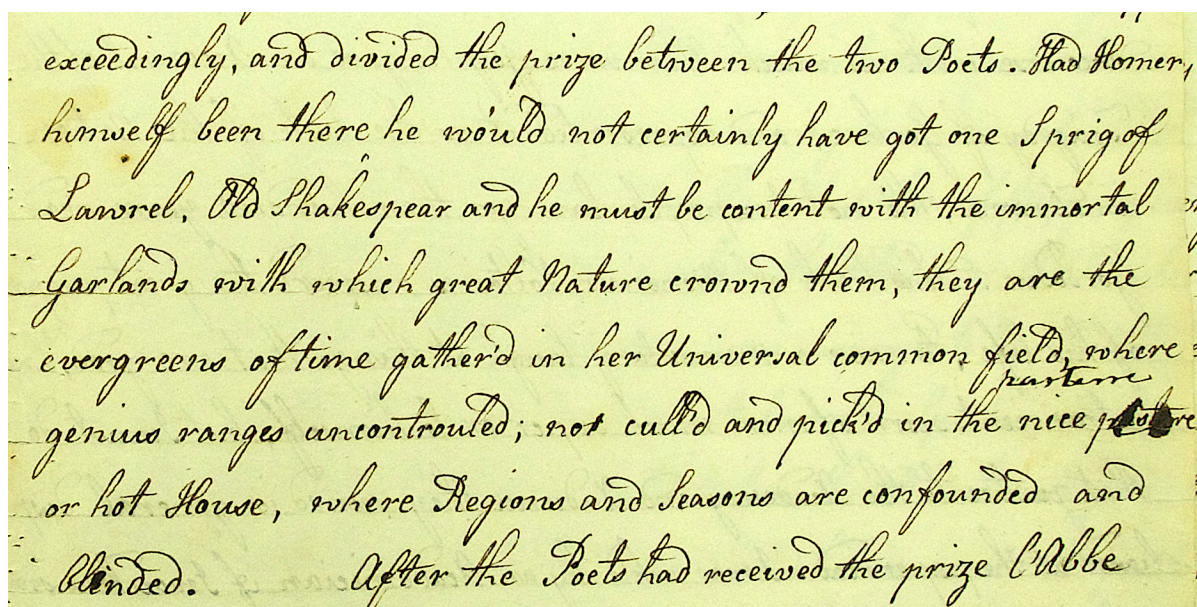 exceedingly, and divided the prize between the two Poets. Had Homer,
himself been there he would not certainly have got one Sprig of
Lawrel. Old Shakespear and he must be content with the immortal
Garlands with which great Nature crownd them, they are the
evergreens of time gather'd in her Universal common field, where
parterre
genius ranges uncontrouled; not cull'd and pick'd in the nice
or hot House, where Regions and Seasons are confounded and
blinded. After the Poets had received the prize l'Abbe